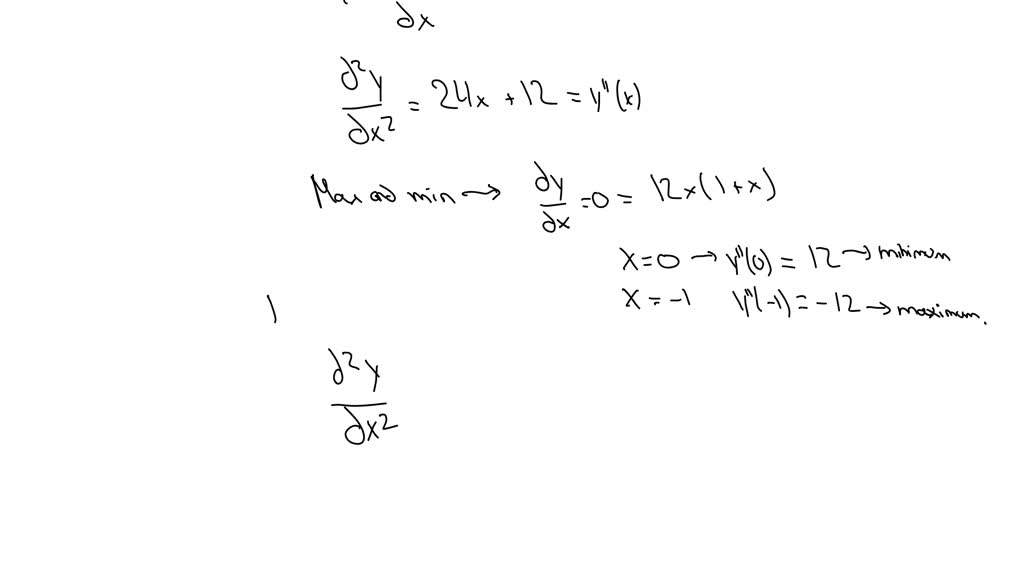 ∂x
∂²y/∂x² = 24x + 12 = y''(x)
Max and min → ∂y/∂x = 0 = 12x(1+x)
x = 0 → y''(0) = 12 → minimum
x = -1 y''(-1) = -12 → maximum.
∂²y/∂x²